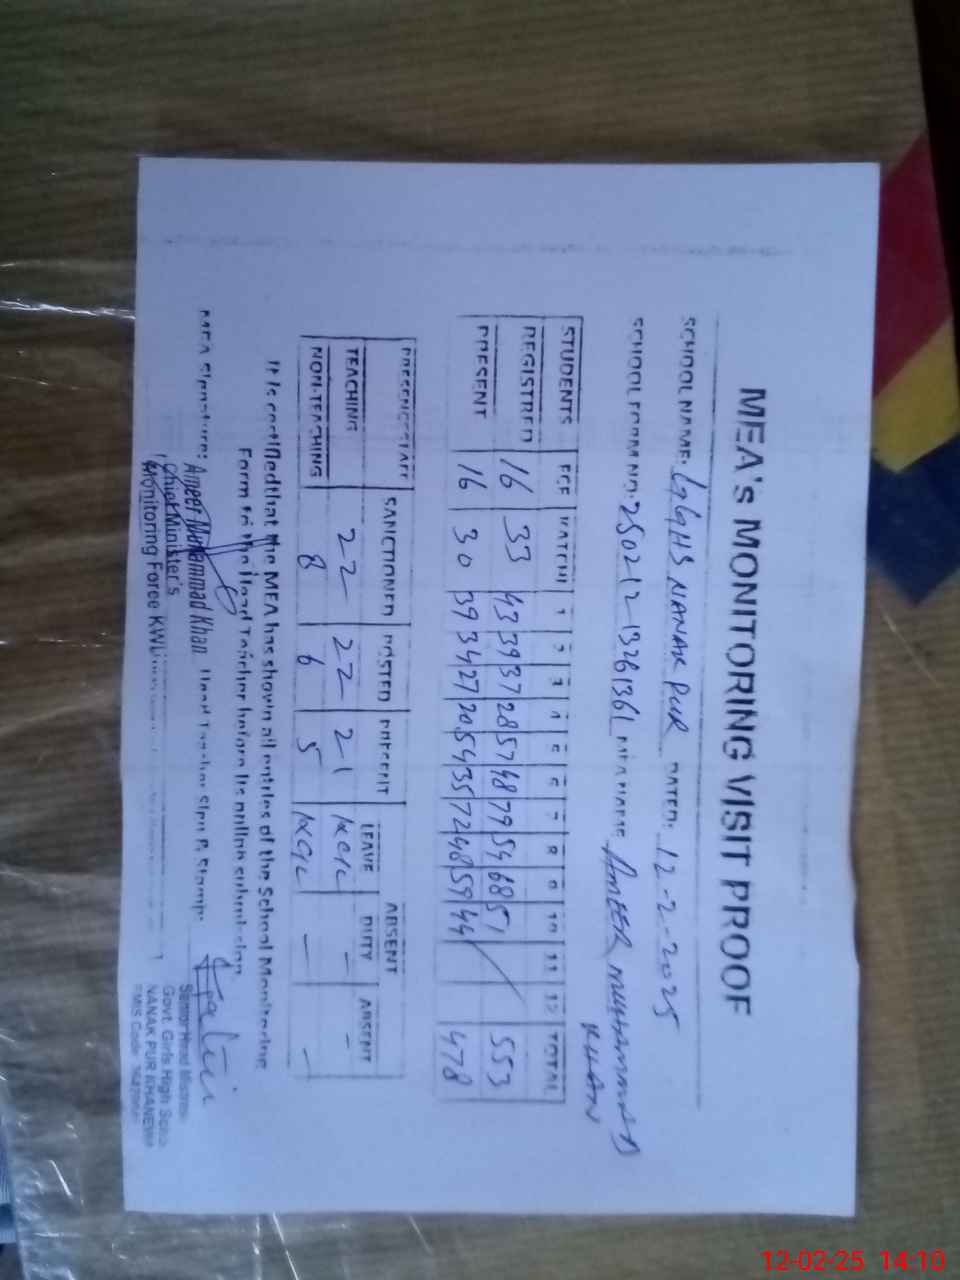 MEA's MONITORING VISIT PROOF
SCHOOL NAME: GGHS NANAK PUR DATED: 12-2-2025
SCHOOL FORM NO: 250212-1326136 MEA NAME: AMEER MUHAMMAD
KHAN
STUDENTS ECE KATCHI 1 2 3 4 5 6 7 8 9 10 11 12 TOTAL
REGISTRED 16 33 43 39 37 28 57 48 79 54 68 51 553
PRESENT 16 30 39 34 27 20 54 35 72 48 59 44 478
PRESENCE STAFF SANCTIONED POSTED PRESENT ABSENT
LEAVE DUTY ABSENT
TEACHING 22 22 21 - -
NON-TEACHING 8 6 5 - -
It is certified that the MEA has shown all entries of the School Monitoring
Form to the Head Teacher before its online submission
MEA Signature: Ameer Muhammad Khan Head Teacher Sign & Stamp:
Chief Minister's
Monitoring Force KWL
Senior Head Mistress
Govt. Girls High School
NANAK PUR KHANEWAL
EMIS Code:
12-02-25 14:10